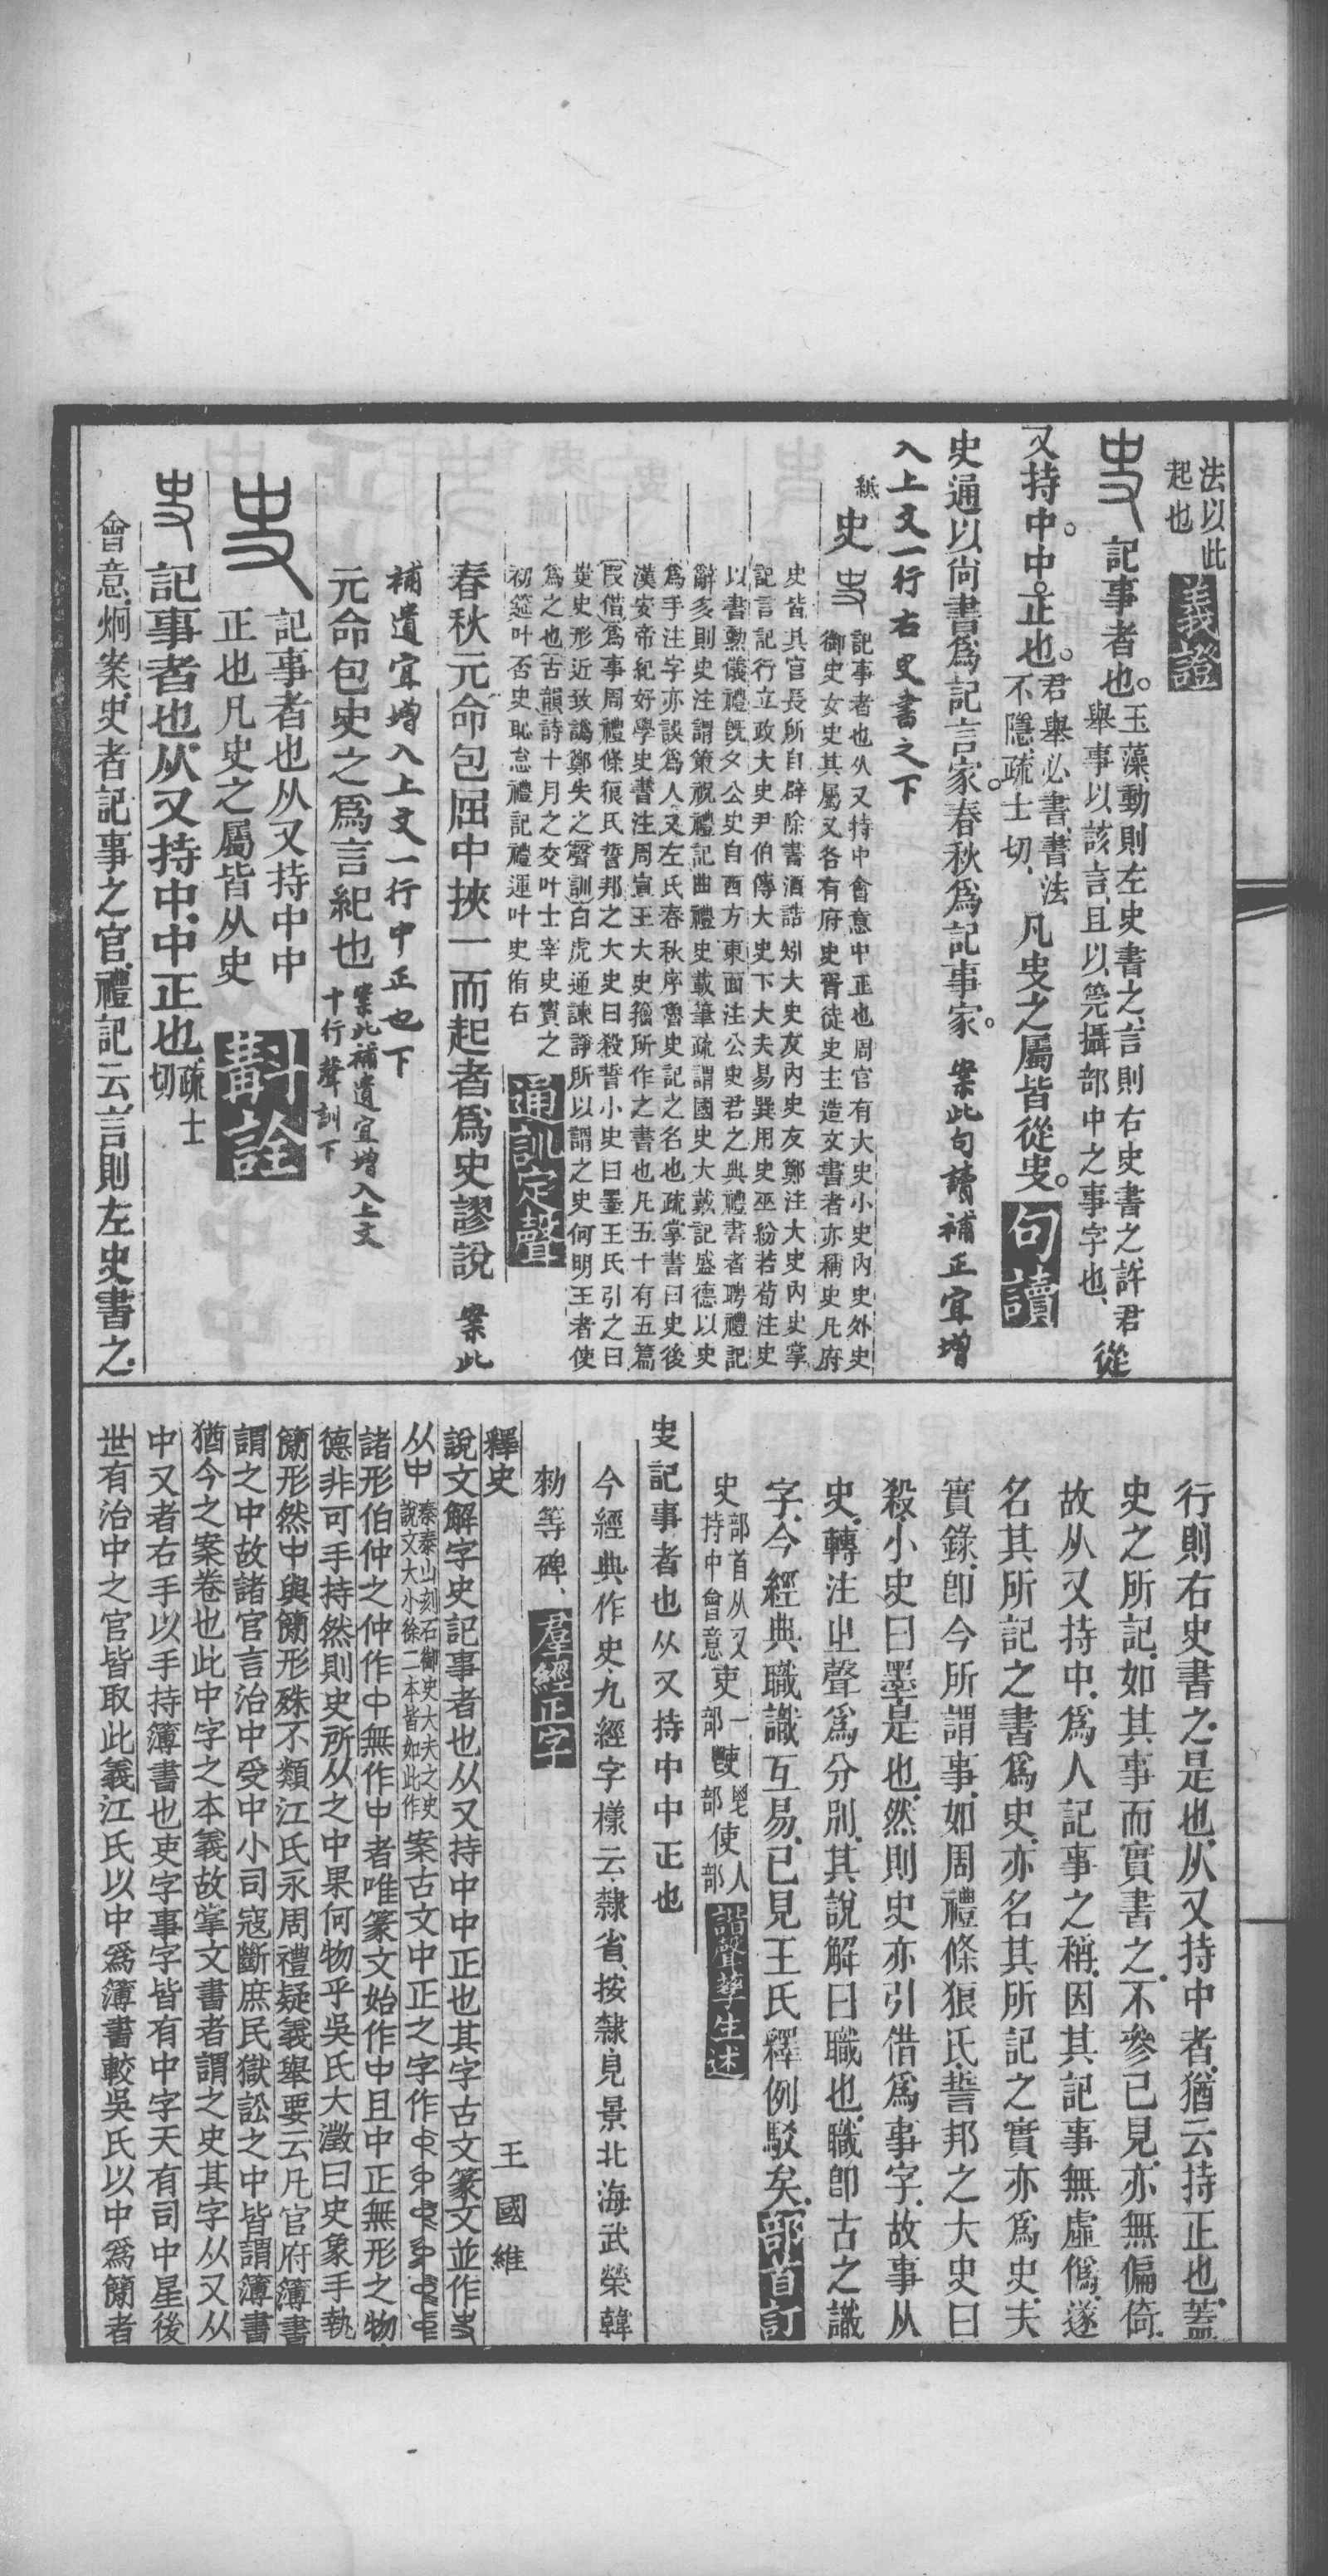 法以此
起也 義證
記事者也。玉藻、動則左史書之、言則右史書之、許君
舉事以該言、且以筦攝部中之事字也、從
又持中。中。正也。君舉必書、書法
不隱疏士切、凡史之屬皆從史。 句讀
史通以尙書爲記言家。春秋爲記事家。 案此句讀補正宜增
入上文一行右史書之下
紙 史 記事者也从又持中會意中正也周官有大史小史內史外史
御史女史其屬又各有府史胥徒史主造文書者亦稱史凡府
史皆其官長所自辟除書酒誥矧大史友內史友鄭注大史內史掌
記言記行立政大史尹伯傳大史下大夫易巽用史巫紛若荀注史
以書勳儀禮旣夕公史自西方東面注公史君之典禮書者聘禮記
辭多則史注謂策祝禮記曲禮史載筆疏謂國史大戴記盛德以史
爲手注字亦誤爲人又左氏春秋序魯史記之名也疏掌書曰史後
漢安帝紀好學史書注周宣王大史籀所作之書也凡五十有五篇
叚借爲事周禮條狼氏誓邦之大史曰殺誓小史曰墨王氏引之曰
叓史形近致譌鄭失之聲訓白虎通諫諍所以謂之史何明王者使
爲之也古韻詩十月之交叶士宰史賓之
初筵叶否史恥怠禮記禮運叶史侑右 通訓定聲
春秋元命包屈中挾一而起者爲史謬說 案此
補遺宜增入上文一行中正也下
元命包史之爲言紀也 案此補遺宜增入上文
十行聲訓下
記事者也从又持中中
正也凡史之屬皆从史 斠詮
記事者也从又持中、中正也、疏士
切
會意、炯案、史者記事之官、禮記云、言則左史書之、
行則右史書之、是也、从又持中者、猶云持正也、蓋
史之所記、如其事而實書之、不參己見、亦無偏倚、
故从又持中、爲人記事之稱、因其記事無虛僞、遂
名其所記之書爲史、亦名其所記之實亦爲史、夫
實錄、卽今所謂事、如周禮條狼氏、誓邦之大史曰
殺、小史曰墨是也、然則史亦引借爲事字、故事从
史、轉注㞢聲爲分別、其說解曰職也、職卽古之識
字、今經典職識互易、已見王氏釋例駁矣、 部首訂
史 部首从又
持中會意 吏 一
部 䰡 鬯
部 使 人
部 諧聲孳生述
史記事者也从又持中中正也
今經典作史、九經字樣云、隸省、按隸見景北海武榮韓
勑等碑、 羣經正字
釋史 王國維
說文解字史記事者也从又持中中正也其字古文篆文並作
从中 秦泰山刻石御史大夫之史
說文大小徐二本皆如此作 案古文中正之字作
諸形伯仲之仲作中無作中者唯篆文始作中且中正無形之物
德非可手持然則史所从之中果何物乎吳氏大澂曰史象手執
簡形然中與簡形殊不類江氏永周禮疑義舉要云凡官府簿書
謂之中故諸官言治中受中小司寇斷庶民獄訟之中皆謂簿書
猶今之案卷也此中字之本義故掌文書者謂之史其字从又从
中又者右手以手持簿書也吏字事字皆有中字天有司中星後
世有治中之官皆取此義江氏以中爲簿書較吳氏以中爲簡者